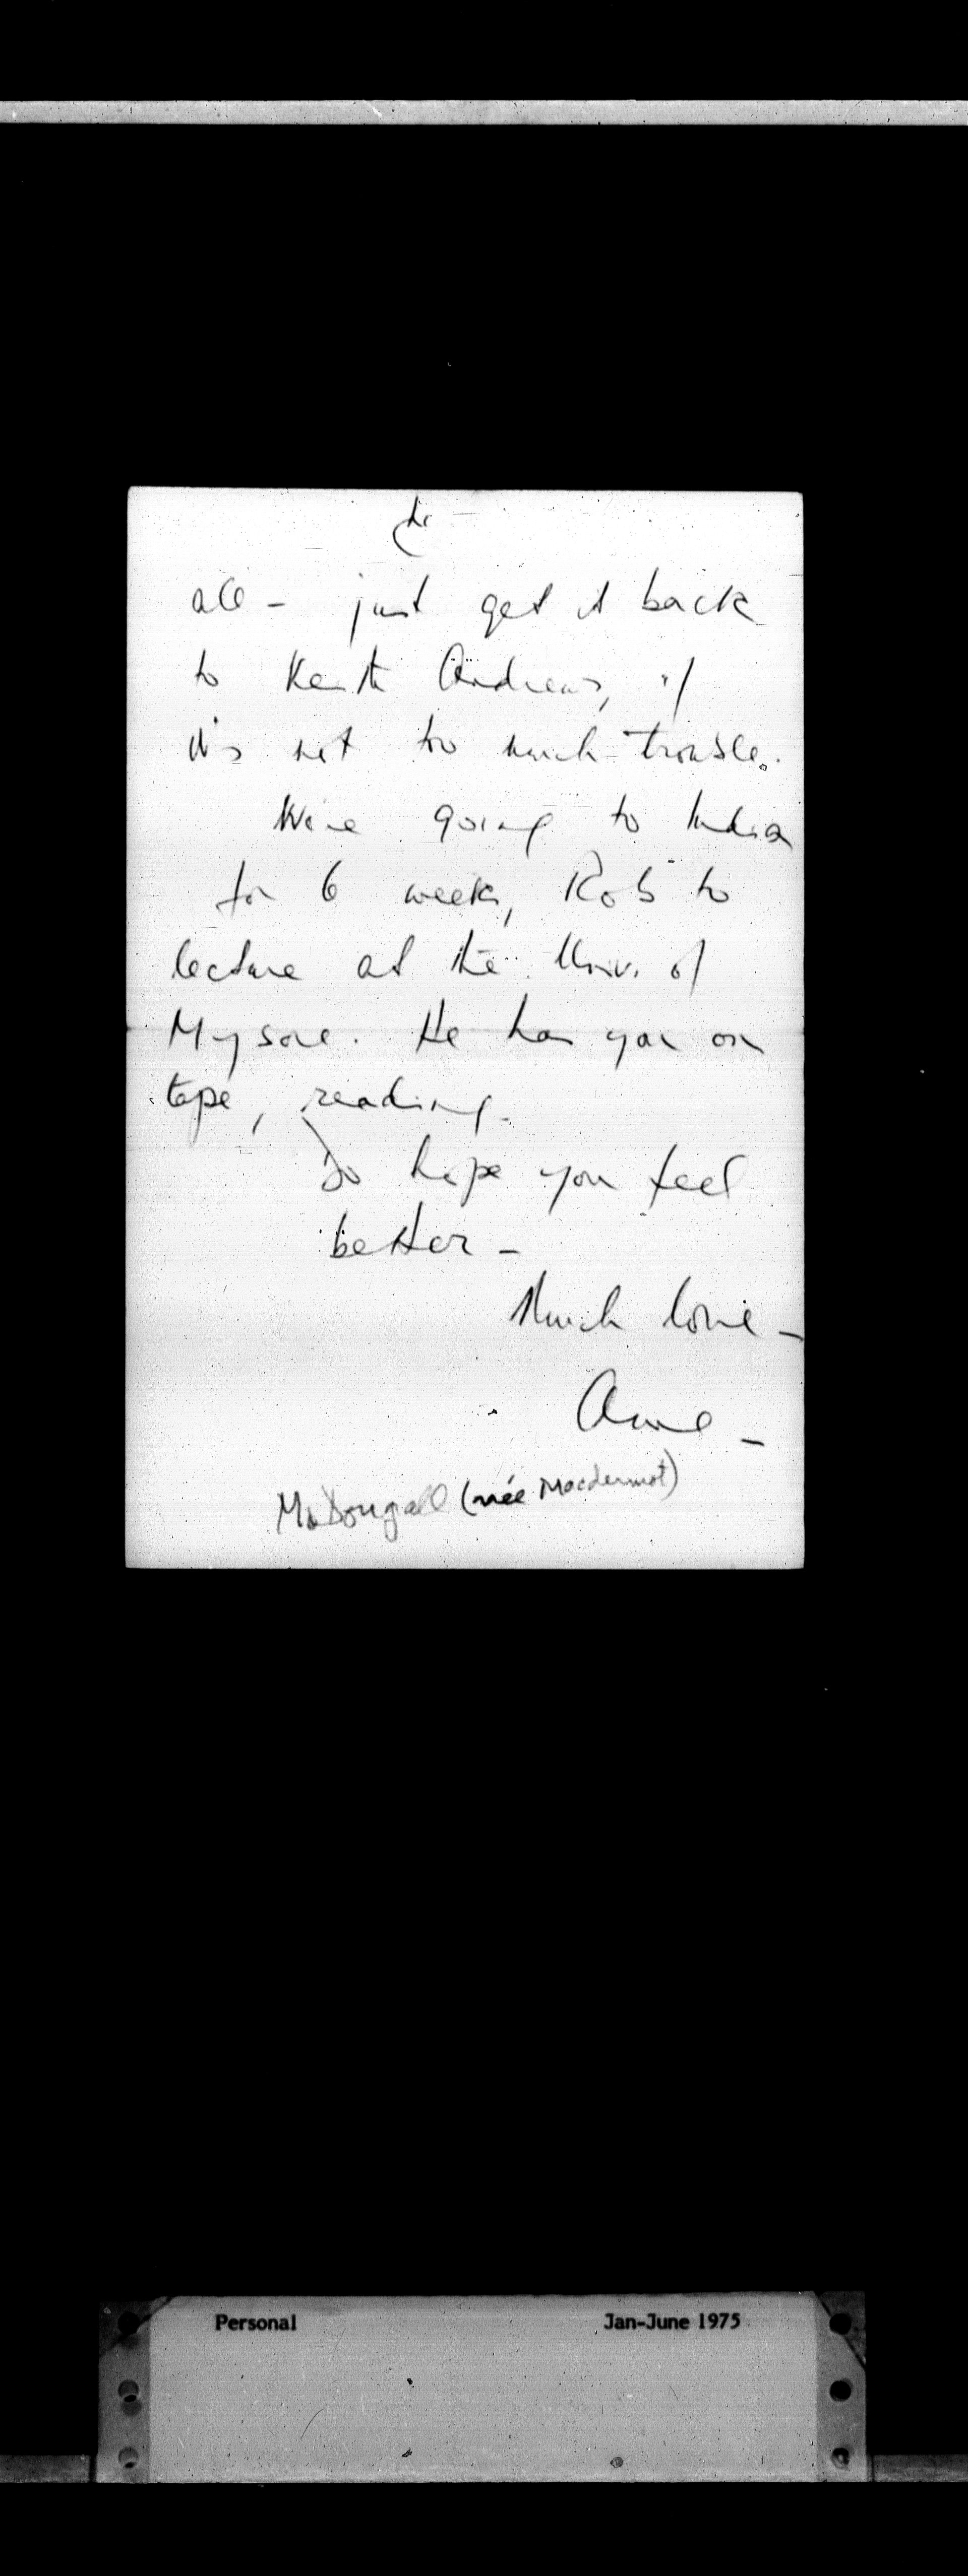 all - just get it back
to Keith Andrews, if
it's not too much trouble.
We're going to India
for 6 weeks, Rob to
lecture at the Univ. of
Mysore. He has you on
tape, reading.
Do hope you feel
better -
Much love -
Anne -
McDougall (née Macdermot)
Personal Jan-June 1975